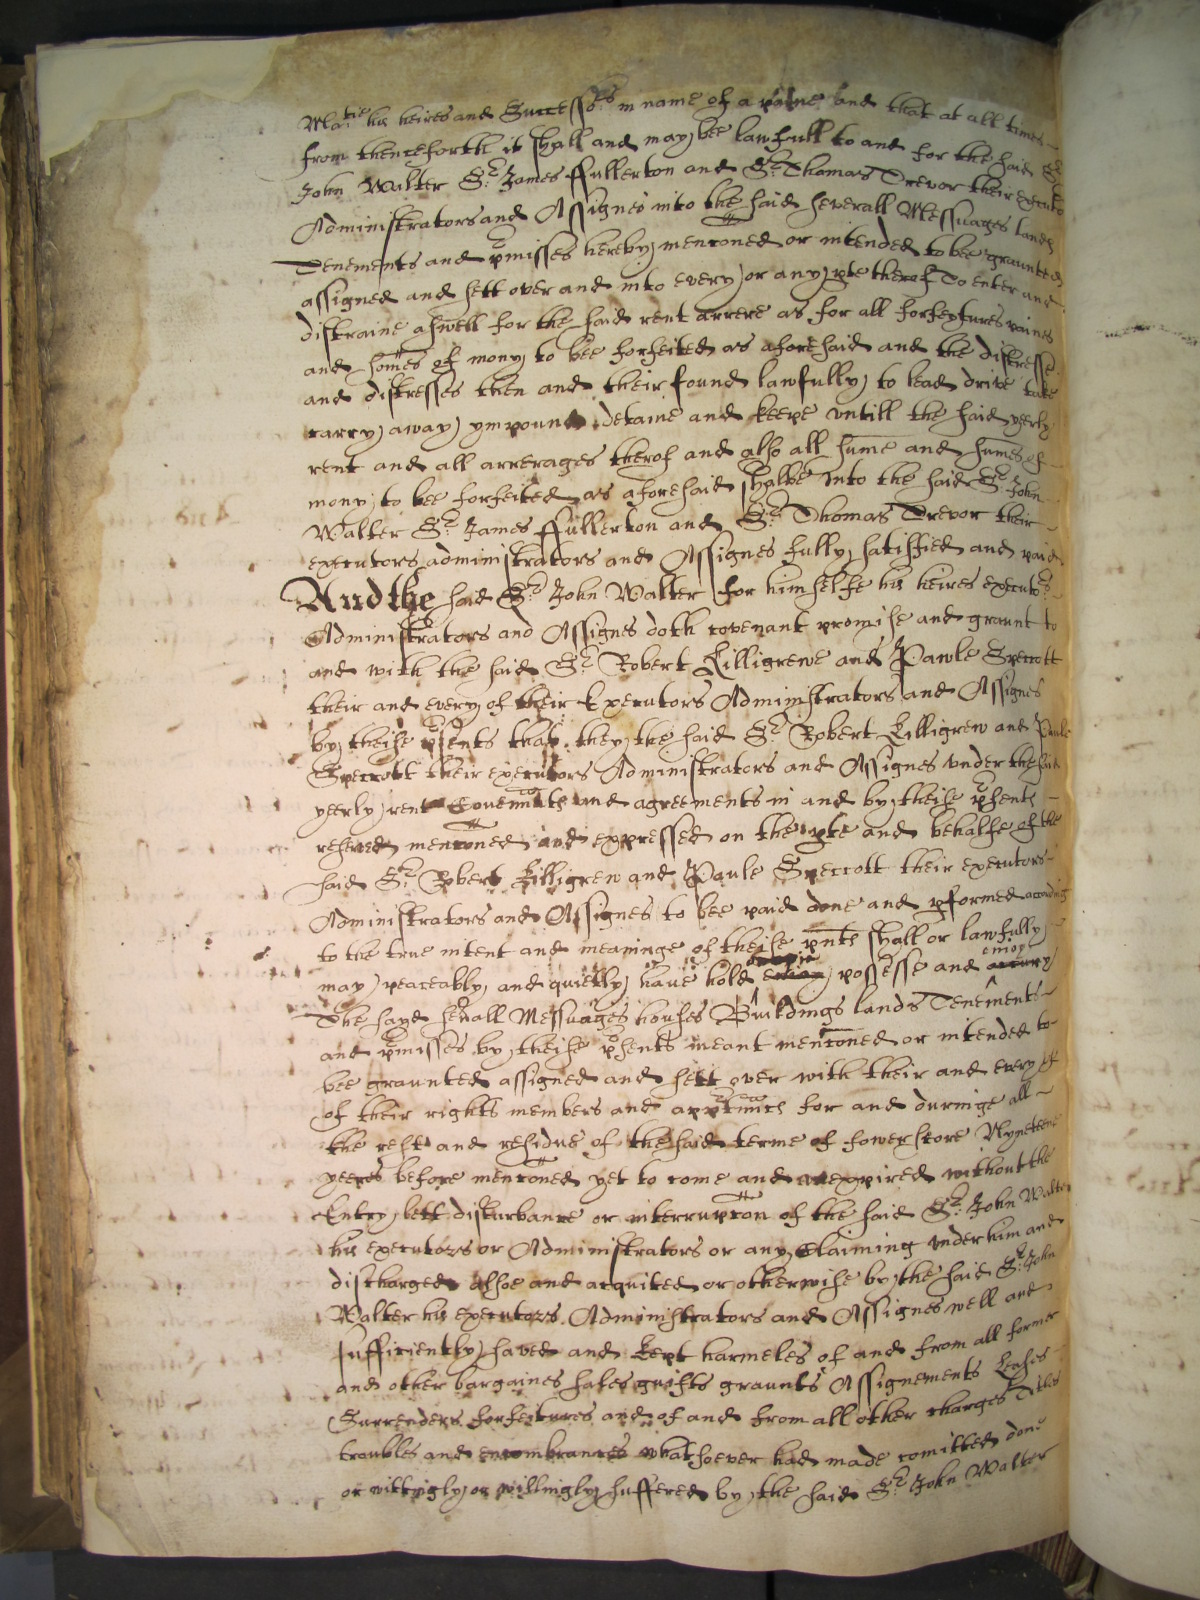 Ma:tie his heires and Successo:rs in name of a paine and that at all times
from thenceforth it shall and may bee lawfull to and for the said Sr
John Walter Sr: James ffullerton and Sr: Thomas Trevor their executo
Administrators and Assignes into the said severall Messuages lands
Tenements and pmisses hereby menconed or intended to bee graunted
assigned and sett over and into every or any pte therof To enter and
distraine aswell for the said rent arrere as for all forfeytures paines
and somes of mony to bee forfeited as aforesaid and the distresse
and distresses then and their found lawfully to lead drive take
carry away ympound detaine and keepe untill the said yeerly
rent and all arrerages therof and also all sume and sumes of
mony to bee forfeited as aforesaid shalbe unto the said Sr: John
Walter Sr: James ffullerton and Sr: Thomas Trevor their
executors administrators and Assignes fully satisfied and paid
And the said Sr: John Walter for himselfe his heires executors
Administrators and Assignes doth covenant promise and graunt to
and with the said Sr: Robert Killigrewe and Pawle Speccott
their and every of their Executors Administrators and Assignes
by theise psents that they the said Sr: Robert Killigrew and Paule
Speccott their executors Administrators and Assignes under the said
yeerly rent Covennts and agreements in and by theise psents
reserved menconed and expressed on the pte and behalfe of the
said Sr: Robert Killigrew and Paule Speccott their executors
Administrators and Assignes to bee paid done and pformed according
to the true intent and meaninge of theise pnts shall or lawfully
may peaceably and quietly have hold possesse and enioy
The sayd seuall Messuages houses Buildings lands Tenements
and pmisses by theise psents meant menconed or intended to
bee graunted assigned and sett over with their and every of
of their rights members and apptnncs for and duringe all
the rest and residue of the said terme of fowerscore Nyneteene
yeeres before menconed yet to come and unexpired without the
Entry lett disturbance or interrupcon of the said Sr: John Walter
his executors or Administrators or any Claiming under him and
discharged alsoe and acquited or otherwise by the said Sr: John
Walter his executors Administrators and Assignes well and
sufficiently saved and kept harmeles of and from all former
and other bargaines sales guifts graunts Assignements Leases
Surrenders forfeitures and of and from all other charges Titles
troubles and encombrances whatsoever had made comitted done
or wittingly or willingly suffered by the said Sr: John Walter